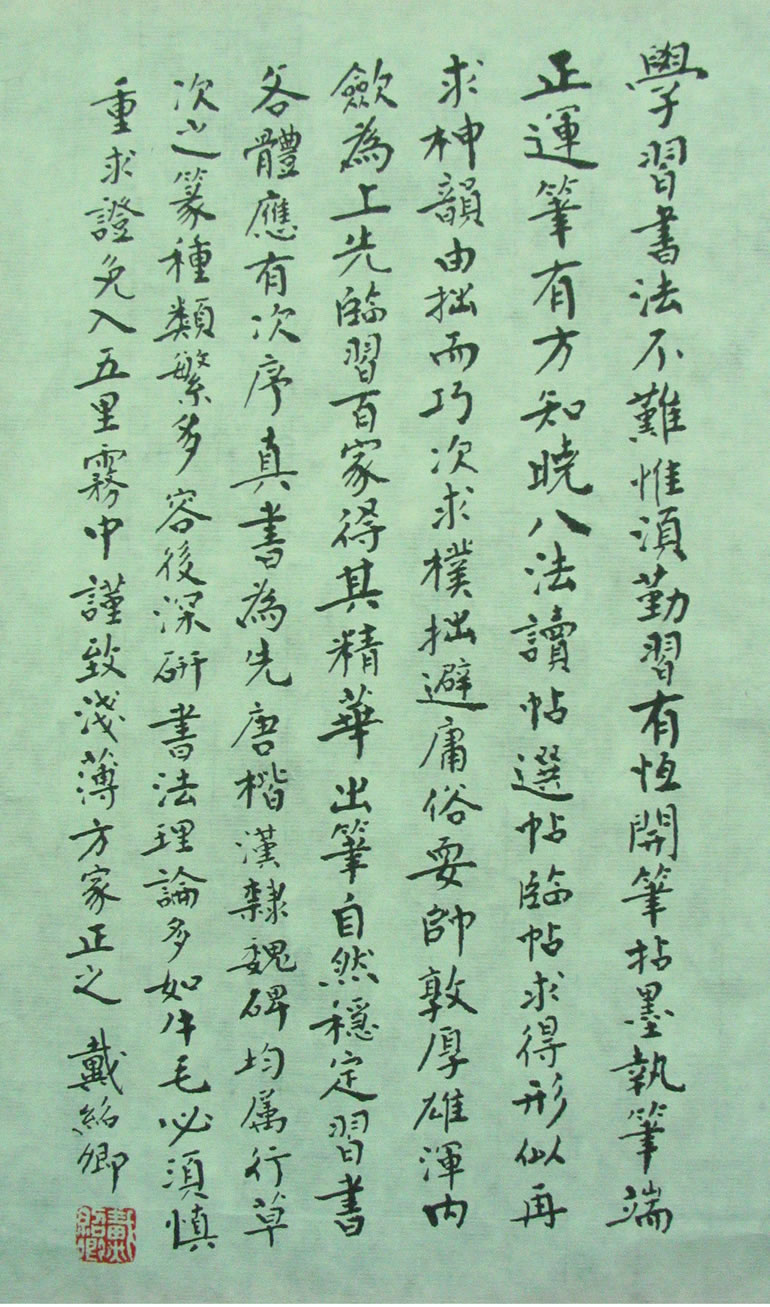 學習書法不難惟須勤習有恆開筆拈墨執筆端
正運筆有方知曉八法讀帖選帖臨帖求得形似再
求神韻由拙而巧次求樸拙避庸俗耍帥敦厚雄渾内
歛為上先臨習百家得其精華出筆自然穩定習書
各體應有次序真書為先唐楷漢隸魏碑均屬行草
次之篆種類繁多容後深研書法理論多如牛毛必須慎
重求證免入五里霧中謹致淺薄方家正之 戴紹卿
戴紹卿